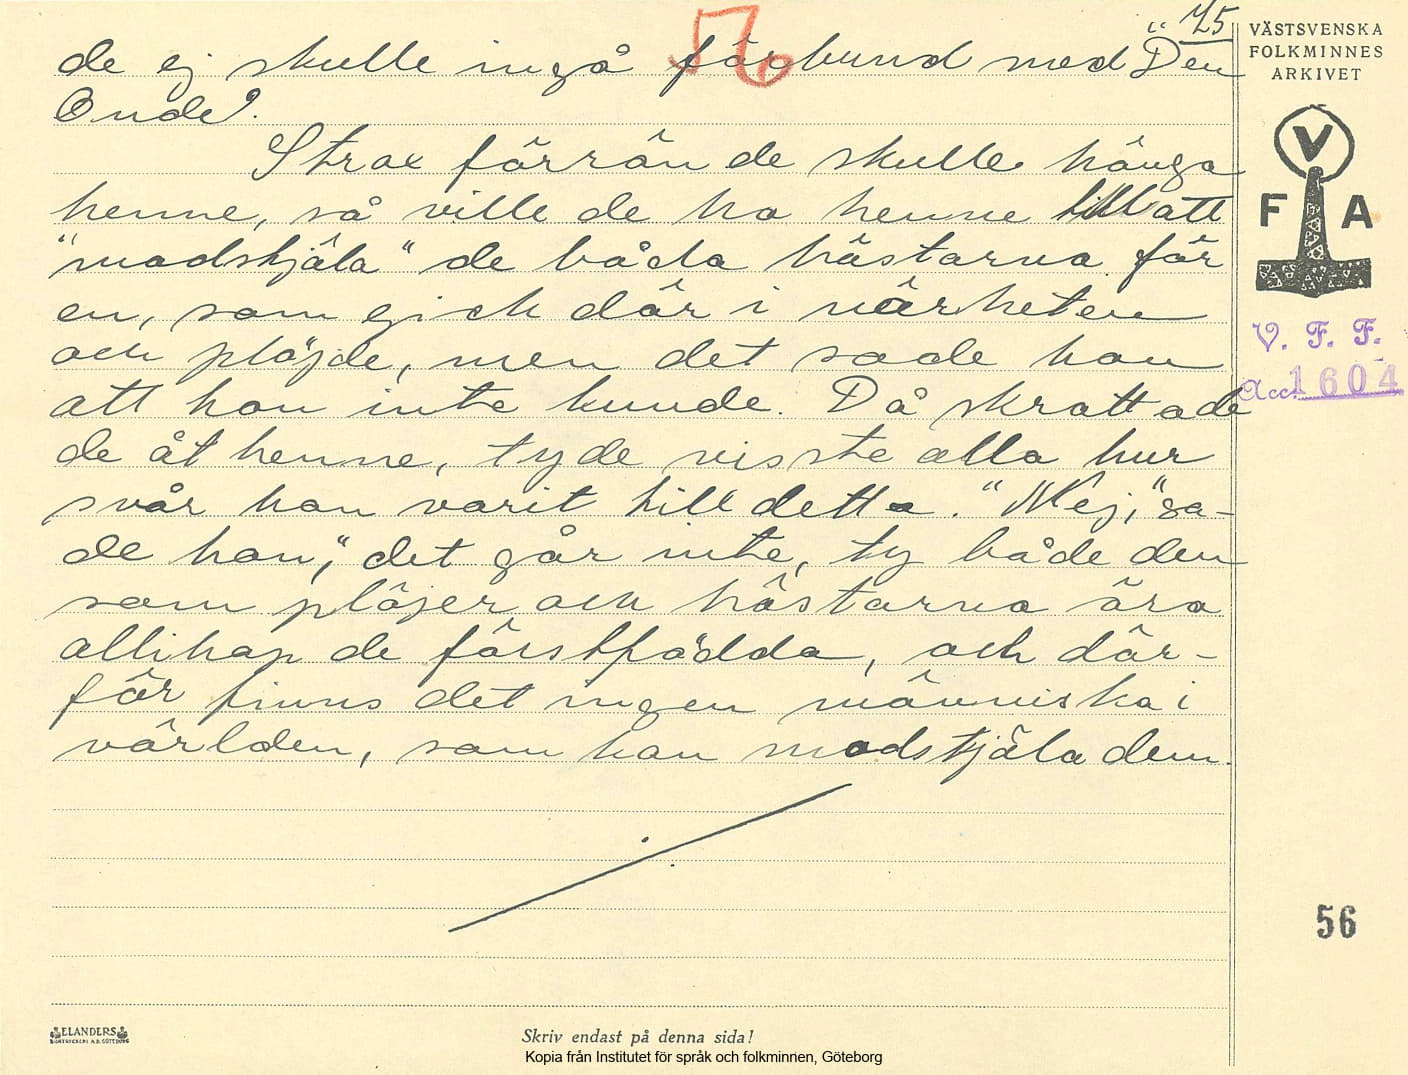 75
56
de ej skulle ingå förbund med "Den
Onde".
Strax förrän de skulle hänga
henne, så ville de ha henne till att
"modstjäla" de båda hästarna för
en, som gick där i närheten
och plöjde, men det sade hon
att hon inte kunde. Då skrattade
de åt henne, ty de visste alla hur
svår hon varit till detta. "Nej," sa-
de hon, "det går inte, ty både den
som plöjer och hästarna äro
allihop de förstfödda, och där-
för finns det ingen människa i
världen, som kan modstjäla dem.
VÄSTSVENSKA
FOLKMINNES
ARKIVET
V
F A
V. F. F.
Acc. 1604
56
ELANDERS
BOKTRYCKERI A.B. GÖTEBORG
Skriv endast på denna sida!
Kopia från Institutet för språk och folkminnen, Göteborg